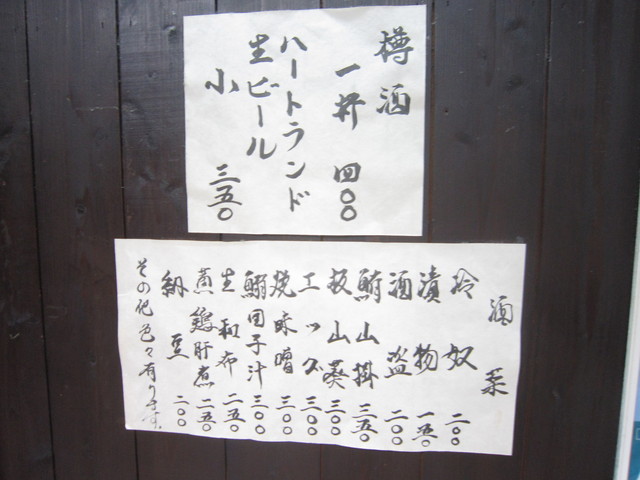 樽酒
一杯 四〇〇
ハートランド
生ビール
小 三五〇
酒菜
冷奴 二〇〇
漬物 一五〇
酒盗 二〇〇
鮪山掛 三五〇
板山葵 三〇〇
エッグ 三〇〇
焼味噌 三〇〇
鰯団子汁 三〇〇
生和布 二五〇
真鶏肝煮 二五〇
納豆 二〇〇
その他色々有ります。